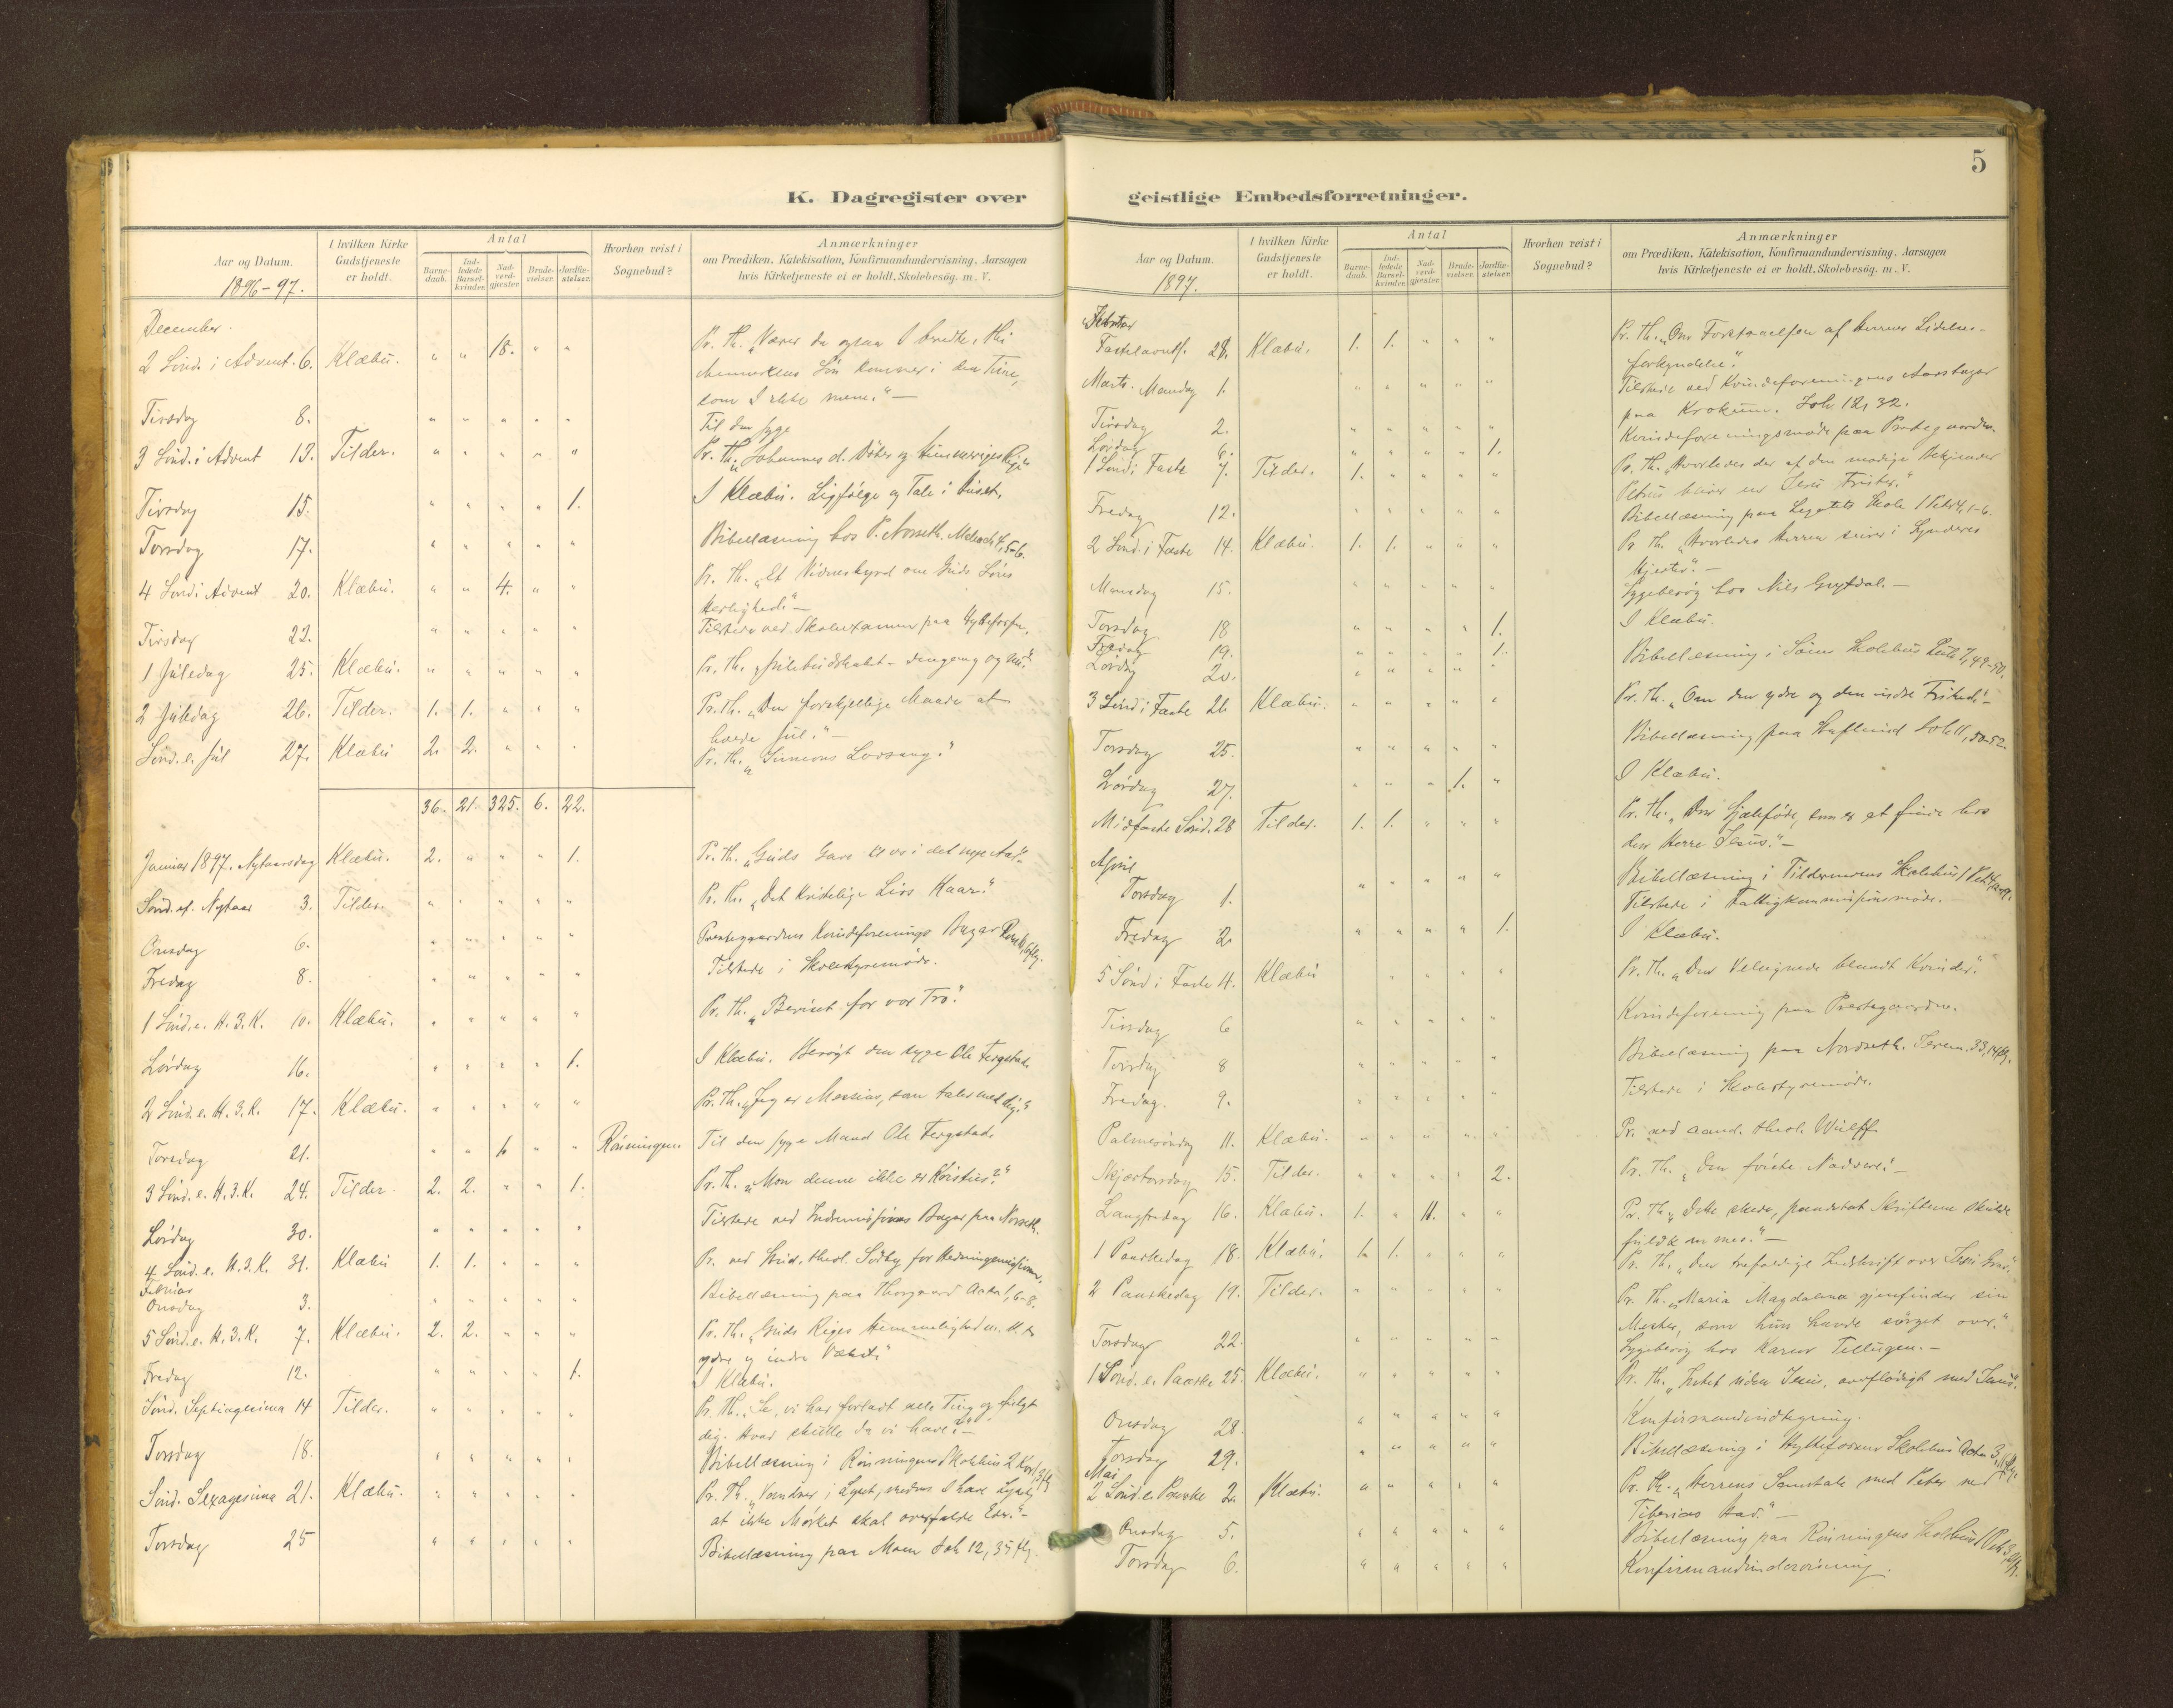 K. Dagregister over
Aar og Datum. 1896-97.
I hvilken Kirke Gudstjeneste er holdt.
Antal
Barne-daab.
Ind-ledede Barsel-kvinder.
Nad-verd-gjester.
Brude-vielser.
Jordfæ-stelser.
Hvorhen reist i Sognebud?
Anmærkninger
om Prædiken, Katekisation, Konfirmandundervisning, Aarsagen
hvis Kirketjeneste ei er holdt, Skolebesøg. m. V.
December.
2 Sønd. i Advent. 6. Klæbu. " " 18. " " Pr. Th. "Værer da ogsaa I beredte, thi
Menneskens Søn kommer i den Time,
som I ikke mene." —
Tirsdag 8. " " " " " Til den syge
3 Sønd. i Advent 13. Tilder. " " " " " Pr. Th. "Johannes d. Døber og Himmeriges Rige
Tirsdag 15. " " " " 1. I Klæbu. Ligfølge og Tale i Huset.
Torsdag 17. " " " " " Bibellæsning hos P. Norseth. Malach 4, 5-6.
4 Sønd i Advent 20. Klæbu. " " 4. " " Pr. Th. "Et Vidnesbyrd om Guds Søns
Herlighed." —
Tirsdag 22. " " " " " Tilstede ved Skoleexamen paa Hyttefossen.
1 Juledag 25. Klæbu. " " " " " Pr. Th. "Julebudskabet - dengang og nu."
2 Juledag 26. Tilder. 1. 1. " " " Pr. Th. "Den forskjellige Maade at
holde Jul." —
Sønd. e. Jul 27. Klæbu 2. 2. " " " Pr. Th. "Simeons Lovsang."
36. 21. 325. 6. 22.
Januar 1897. Nytaarsdag Klæbu. 2. " " " 1. Pr. Th. "Guds Gave til os i det nye Aar"
Sønd. ef. Nytaar 3. Tilder. " " " " " Pr. Th. "Det kristelige Livs Kaar."
Onsdag 6. " " " " " Prestegaardens Kvindeforenings Bazar
Fredag 8. " " " " " Tilstede i Skolestyremøde.
1 Sønd. e. H. 3. K. 10. Klæbu. " " " " " Pr. Th. "Beviset for vor Tro."
Lørdag 16. " " " " 1. I Klæbu. Besøgt den syge Ole Tergstad.
2 Sønd. e. H. 3. K. 17. Klæbu. " " " " " Pr. Th. "Jeg er Messias, som taler med dig."
Torsdag 21. " " 1. " " Røsningen. Til den syge Mand Ole Tergstad.
3 Sønd. e. H. 3. K. 24. Tilder. 2. 2. " " 1. Pr. Th. "Mon denne ikke er Kristus?"
Lørdag 30. " " " " " Tilstede ved Indremissions Bazar paa Norseth.
4 Sønd. e. H. 3. K. 31. Klæbu 1. 1. " " " Pr. ved Stud. theol. Sødby for Hedningemissionen.
Februar
Onsdag 3. " " " " " Bibellæsning paa Thorgaard Acta 1, 6-8.
5 Sønd. e. H. 3. K. 7. Klæbu. 2. 2. " " " Pr. Th. "Guds Riges Hemmelighed
ydre og indre Vækst."
Fredag 12. " " " " 1. I Klæbu.
Sønd. Septuagesima 14 Tilder. " " " " " Pr. Th. "Se, vi har forladt alle Ting og fulgt
dig. Hvad skulle da vi have?" —
Torsdag 18. " " " " " Bibellæsning i Røsningens Skolehus
Sønd. Sexagesima 21. Klæbu. " " " " " Pr. Th. "Vandrer i Lyset, medens I have Lyset,
at ikke Mørket skal overfalde Eder." —
Torsdag 25 " " " " " Bibellæsning paa Moen Joh 12, 35 flg.
5
geistlige Embedsforretninger.
Aar og Datum. 1897.
I hvilken Kirke Gudstjeneste er holdt.
Antal
Barne-daab.
Ind-ledede Barsel-kvinder.
Nad-verd-gjester.
Brude-vielser.
Jordfæ-stelser.
Hvorhen reist i Sognebud?
Anmærkninger
om Prædiken, Katekisation, Konfirmandundervisning, Aarsagen
hvis Kirketjeneste ei er holdt, Skolebesøg. m. V.
Februar
Fastelavnsf. 28. Klæbu. 1. 1. " " " Pr. Th. "Om Forstaaelsen af Herrens Lidelses-
forkyndelse."
Marts. Mandag 1. " " " " " Tilstede ved Kvindeforeningens Aarsbazar
paa Krokum. Joh 12, 32.
Tirsdag 2. " " " " " Kvindeforeningsmøde paa Prestegaarden.
Lørdag 6. " " " " 1.
1 Sønd i Faste 7. Tilder. 1. " " " " Pr. Th. "Hvorledes der af den modige Bekjender
Petrus bliver en Jesu Frister."
Fredag 12. " " " " " Bibellæsning paa Legatets Skole 1 Petr 4, 1-6.
2 Sønd. i Faste 14. Klæbu. 1. 1. " " " Pr. Th. "Hvorledes Herren seirer i Synderes
Hjerter." —
Mandag 15. " " " " " Sygebesøg hos Nils —
Torsdag 18 " " " " 1. I Klæbu.
Fredag 19. " " " " 1.
Lørdag 20. " " " " " Bibellæsning i
3 Sønd i Faste 21. Klæbu. " " " " " Pr. Th. "Om den ydre og den indre Frihed." —
Torsdag 25. " " " " " Bibellæsning paa
Lørdag 27. " " " 1. " I Klæbu.
Midfaste Sønd. 28 Tilder. 1. 1. " " " Pr. Th. "Den Sjæleføde, som er at finde hos
den Herre Jesus." —
April
Torsdag 1. " " " " " Bibellæsning i Tildermoens Skolehus
Tilstede i Fattigkommissionsmøde.
Fredag 2. " " " " 1. I Klæbu.
5 Sønd i Faste 4. Klæbu " " " " Pr. Th. "Den Velsignede blandt Kvinder."
Tirsdag 6 " " " " " Kvindeforening paa Prestegaarden.
Torsdag 8 " " " " " Bibellæsning paa Nordseth. Jerem. 33, 14 flg.
Fredag. 9. " " " " " Tilstede i Skolestyremøde.
Palmesøndag 11. Klæbu. " " " " " Pr. ved cand. theol. Wulff.
Skjærtorsdag 15. Tilder. " " " " 2. Pr. Th. "Den første Nadvere." —
Langfredag 16. Klæbu. 1. " 11. " " Pr. Th. "Dette skede, paa det at Skrifterne skulde
fuldkommes." —
1 Paaskedag 18. Klæbu. 1. 1. " " " Pr. Th. "Den trefoldige Indskrift over Jesu Grav."
2 Paaskedag 19. Tilder. " " " " " Pr. Th. "Maria Magdalena gjenfinder sin
Mester, som hun havde sørget over."
Torsdag 22. " " " " " Sygebesøg hos Karen Tellugen. —
1 Sønd. e. Paaske 25. Klæbu. " " " " " Pr. Th. "Intet uden Jesus, overflødigt med Jesus".
Onsdag 28. " " " " " Konfirmandindtegning.
Torsdag 29. " " " " " Bibellæsning i Hyttefossens Skolehus Acta 3,
Mai
2 Sønd. e. Paaske 2. Klæbu. " " " " " Pr. Th. "Herrens Samtale med Peter ved
Tiberias Hav." —
Onsdag 5. " " " " " Bibellæsning paa Røsningens Skolehus
Torsdag 6. " " " " " Konfirmandundervisning.